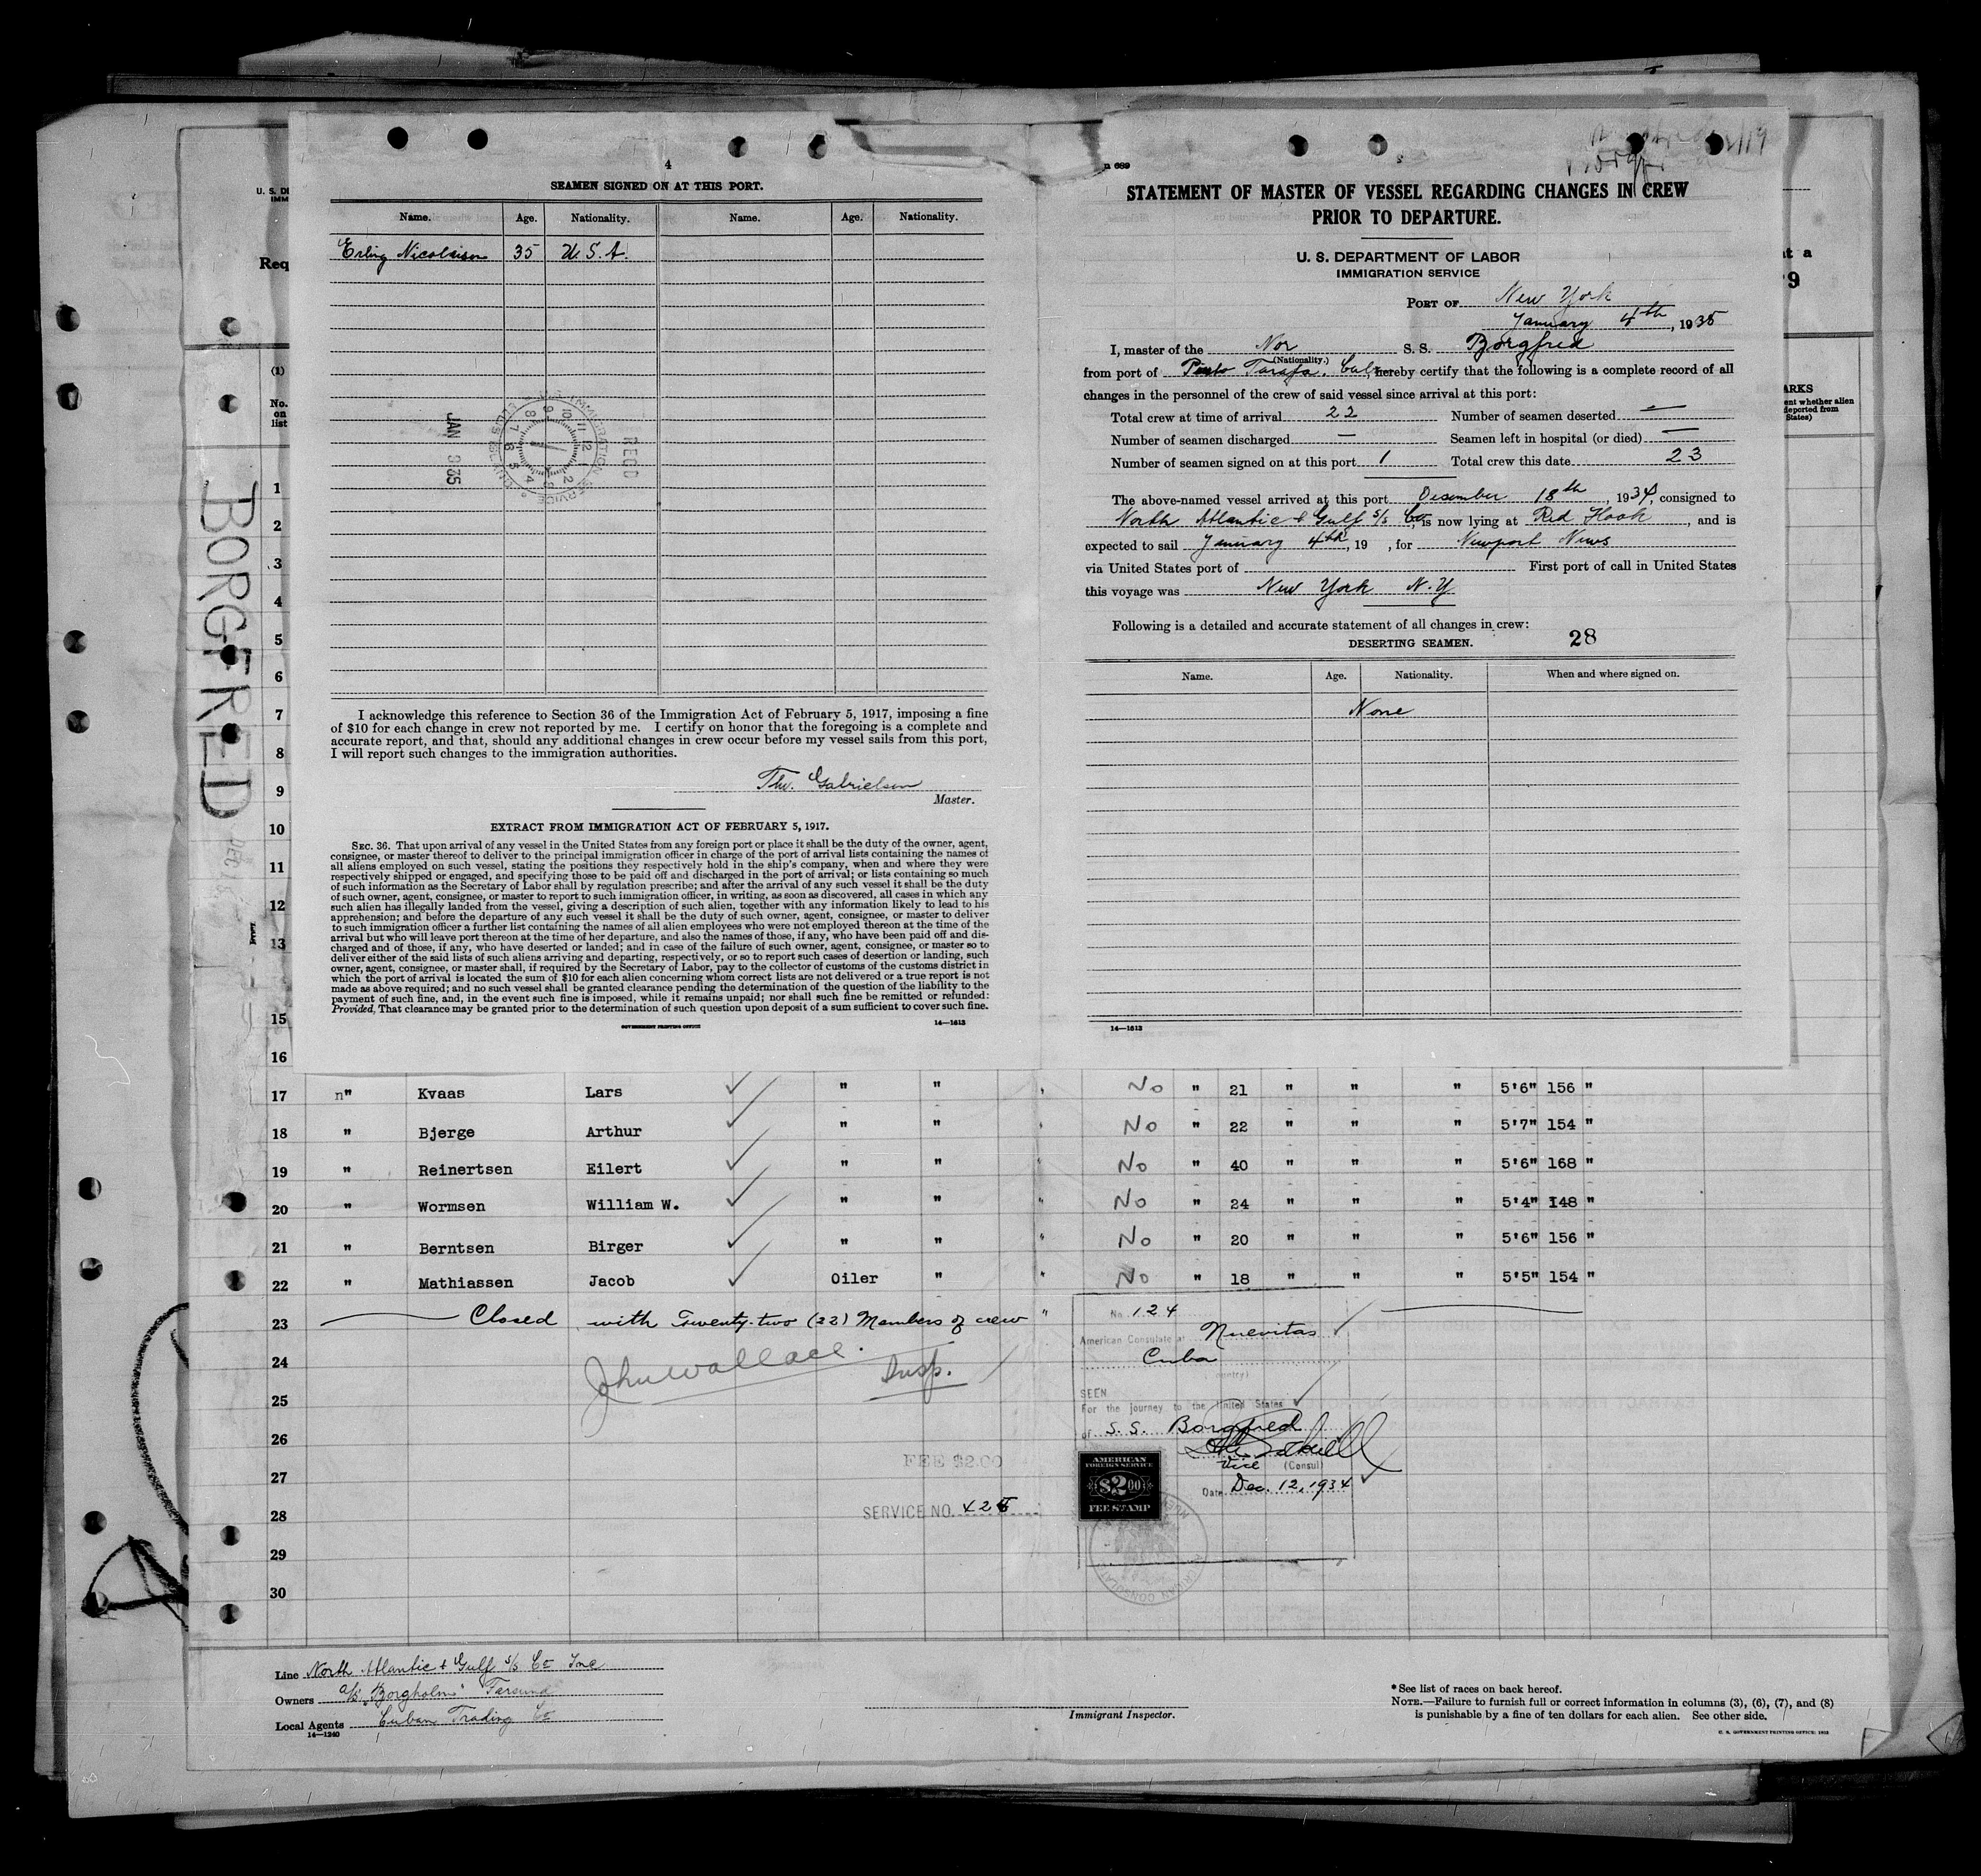 4
SEAMEN SIGNED ON AT THIS PORT.
Name. Age. Nationality. Name. Age. Nationality.
Erling Nicolaisen 35 U.S.A.
JAN 935
IMMIGRATION SERVICE
RECD
I acknowledge this reference to Section 36 of the Immigration Act of February 5, 1917, imposing a fine
of $10 for each change in crew not reported by me. I certify on honor that the foregoing is a complete and
accurate report, and that, should any additional changes in crew occur before my vessel sails from this port,
I will report such changes to the immigration authorities.
Thv. Gabrielsen
Master.
EXTRACT FROM IMMIGRATION ACT OF FEBRUARY 5, 1917.
SEC. 36. That upon arrival of any vessel in the United States from any foreign port or place it shall be the duty of the owner, agent,
consignee, or master thereof to deliver to the principal immigration officer in charge of the port of arrival lists containing the names of
all aliens employed on such vessel, stating the positions they respectively hold in the ship's company, when and where they were
respectively shipped or engaged, and specifying those to be paid off and discharged in the port of arrival; or lists containing so much
of such information as the Secretary of Labor shall by regulation prescribe; and after the arrival of any such vessel it shall be the duty
of such owner, agent, consignee, or master to report to such immigration officer, in writing, as soon as discovered, all cases in which any
such alien has illegally landed from the vessel, giving a description of such alien, together with any information likely to lead to his
apprehension; and before the departure of any such vessel it shall be the duty of such owner, agent, consignee, or master to deliver
to such immigration officer a further list containing the names of all alien employees who were not employed thereon at the time of the
arrival but who will leave port thereon at the time of her departure, and also the names of those, if any, who have been paid off and dis-
charged and of those, if any, who have deserted or landed; and in case of the failure of such owner, agent, consignee, or master so to
deliver either of the said lists of such aliens arriving and departing, respectively, or so to report such cases of desertion or landing, such
owner, agent, consignee, or master shall, if required by the Secretary of Labor, pay to the collector of customs of the customs district in
which the port of arrival is located the sum of $10 for each alien concerning whom correct lists are not delivered or a true report is not
made as above required; and no such vessel shall be granted clearance pending the determination of the question of the liability to the
payment of such fine, and, in the event such fine is imposed, while it remains unpaid; nor shall such fine be remitted or refunded:
Provided, That clearance may be granted prior to the determination of such question upon deposit of a sum sufficient to cover such fine.
GOVERNMENT PRINTING OFFICE 14—1613
689
STATEMENT OF MASTER OF VESSEL REGARDING CHANGES IN CREW
PRIOR TO DEPARTURE.
U. S. DEPARTMENT OF LABOR
IMMIGRATION SERVICE
PORT OF New York
January 4th, 1935
I, master of the Nor S. S. Borgfred
(Nationality.)
from port of Tarafa. Cuba, hereby certify that the following is a complete record of all
changes in the personnel of the crew of said vessel since arrival at this port:
Total crew at time of arrival 22 Number of seamen deserted —
Number of seamen discharged — Seamen left in hospital (or died) —
Number of seamen signed on at this port 1 Total crew this date 23
The above-named vessel arrived at this port Desember 18th, 1934, consigned to
North Atlantic & Gulf S/S Co, is now lying at Red Hook, and is
expected to sail January 4th, 19 , for Newport News
via United States port of First port of call in United States
this voyage was New York N.Y
Following is a detailed and accurate statement of all changes in crew:
28
DESERTING SEAMEN.
Name. Age. Nationality. When and where signed on.
None
14—1613
U. S. DE
IMM
Req
(1)
No.
on
list
BORGFRED
at a
9
ARKS
ent whether alien
deported from
States)
1
2
3
4
5
6
7
8
9
10
11
12
13
15
16
17 n" Kvaas Lars " " " No " 21 " " " 5'6" 156 "
18 " Bjerge Arthur " " " No " 22 " " " 5'7" 154 "
19 " Reinertsen Eilert " " " No " 40 " " " 5'6" 168 "
20 " Wormsen William W. " " " No " 24 " " " 5'4" 148 "
21 " Berntsen Birger " " " No " 20 " " " 5'6" 156 "
22 " Mathiassen Jacob Oiler " " No " 18 " " " 5'5" 154 "
23 Closed with Twenty-two (22) Members of crew "
24 John Wallace. Insp.
25
26
27
28
29
30
No. 124
American Consulate at Nuevitas
Cuba
SEEN
For the journey to the United States
of S. S. Borgfred
Vice (Consul)
Date Dec. 12, 1934
AMERICAN
FOREIGN SERVICE
$2.00
FEE STAMP
FEE $2.00
SERVICE NO. 425
Line North Atlantic & Gulf S/S Co Inc
Owners A/S "Borgholm" Farsund
Local Agents Cuban Trading Co
14—1240
Immigrant Inspector.
* See list of races on back hereof.
NOTE.—Failure to furnish full or correct information in columns (3), (6), (7), and (8)
is punishable by a fine of ten dollars for each alien. See other side.
U. S. GOVERNMENT PRINTING OFFICE: